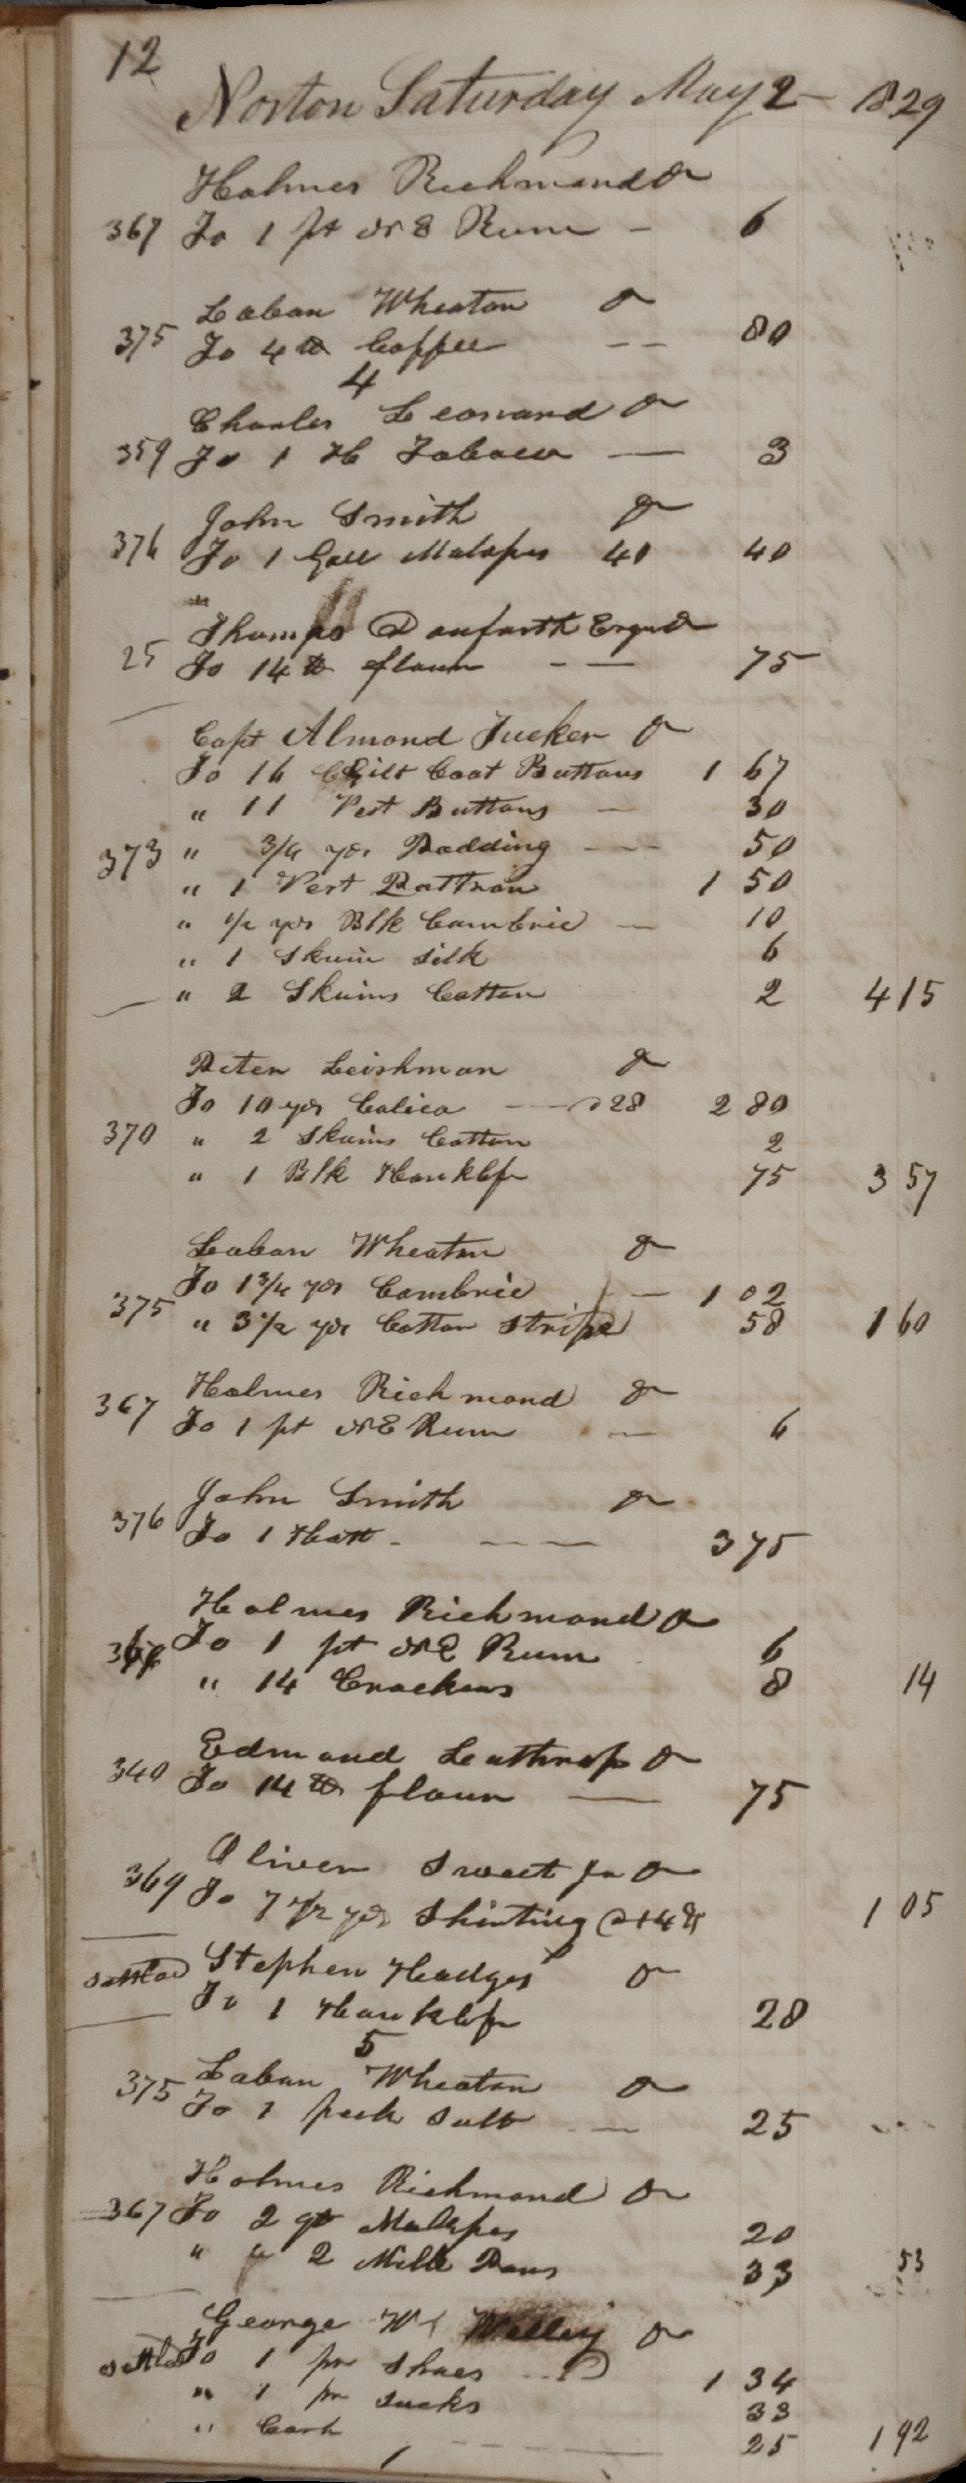 12
Norton Saturday May 2 — 1829
Holmes Richmond Dr
367 To 1 pt N E Rum - 6
Laban Wheaton Dr
375 To 4 lb Coffee -- 80
4
Charles Leonard Dr
359 To 1 H Tobacco — 3
John Smith Dr
376 To 1 Gall Molasses 40 40
Thomas Danforth Esqr Dr
25 To 14 lb flour - — 75
Capt Almond Tucker Dr
To 16 Gilt Coat Buttons 1 67
" 11 Vest Buttons — 30
373 " 3/4 yds Padding --- 50
" 1 Vest Pattron 1 50
" 1/2 yds Blk Cambric — 10
" 1 Skuin Silk 6
" 2 Skuins Cotton 2 415
Peter Leishman Dr
To 10 yds Calico — @ 28 2 80
370 " 2 Skuins Cotton 2
" 1 Blk Hankkf 75 3 57
Laban Wheaton Dr
To 1 3/4 yds Cambric — 1 02
375 " 3 1/2 yds Cotton Stripe 58 1 60
Holmes Richmond Dr
367 To 1 pt N E Rum — 6
John Smith Dr
376 To 1 Hatt - —— 3 75
Holmes Richmond Dr
367 To 1 pt N E Rum 6
" 14 Crackers 8 14
Edmond Lathrop Dr
340 To 14 lb flour — 75
Oliver Sweet Jr Dr
369 To 7 1/2 yds Shirting @ 14 1 05
Stephen Hadges Dr
settled To 1 Hankkf 28
5
375 Laban Wheaton Dr
To 1 peck Salt — 25
Holmes Richmond Dr
367 To 2 qt Molasses 20
" 2 Milk Pans 33 53
George W Welley Dr
settled To 1 pr Shoes 1 34
" 1 pr Socks 33
" Cash — 25 1 92